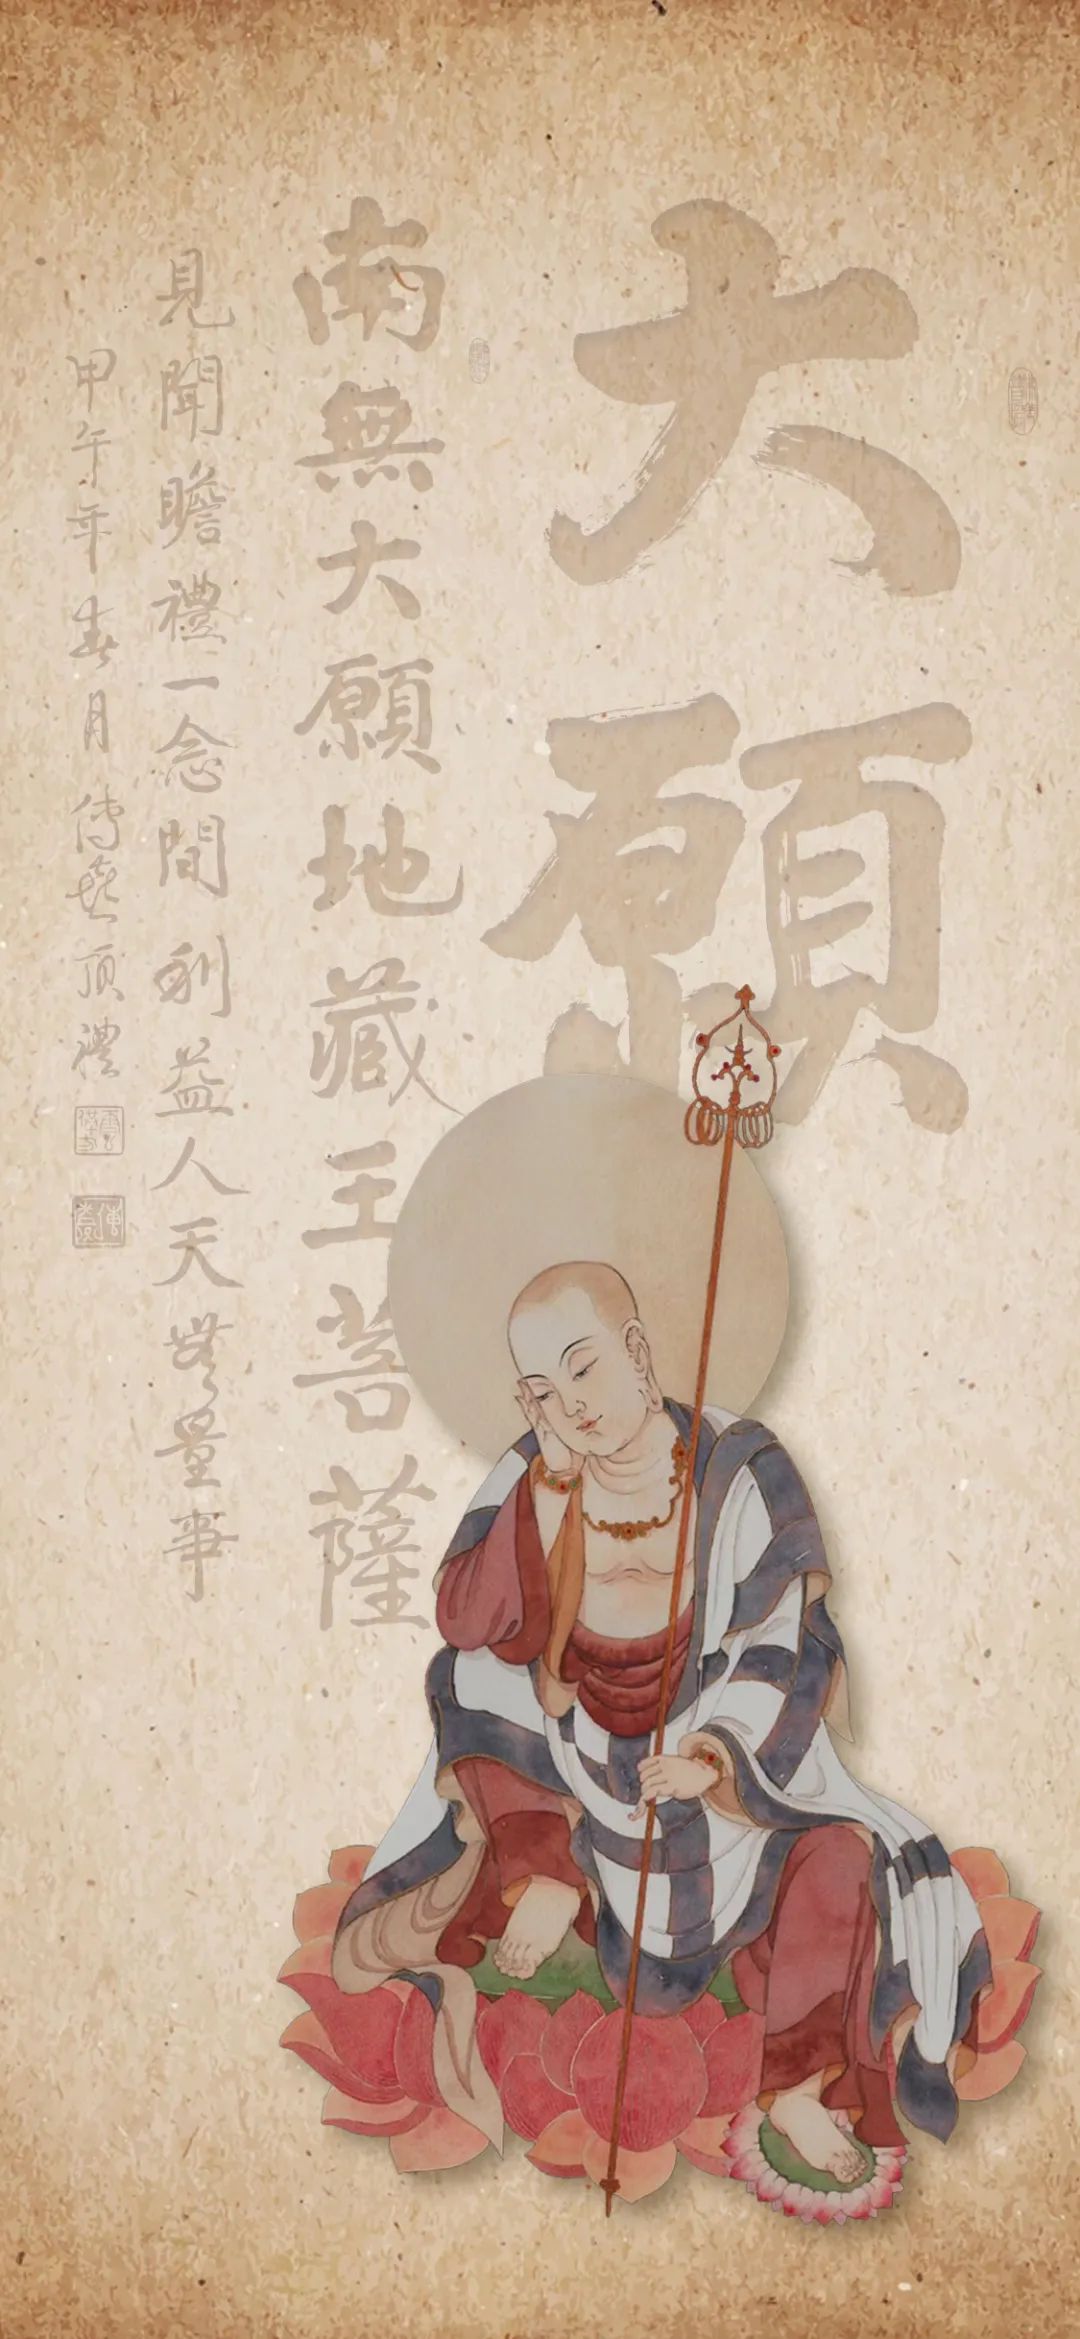 大願
南無大願地藏王菩薩
見聞瞻禮一念間利益人天無量事
甲午年春月傳喜頂禮